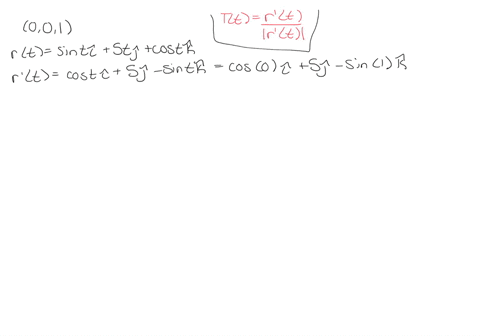 (0,0,1)
T(t) = r'(t) / |r'(t)|
r(t) = sint î + 5t ĵ + cost k̂
r'(t) = cost î + 5ĵ - sint k̂ = cos(0) î + 5ĵ - sin(1) k̂